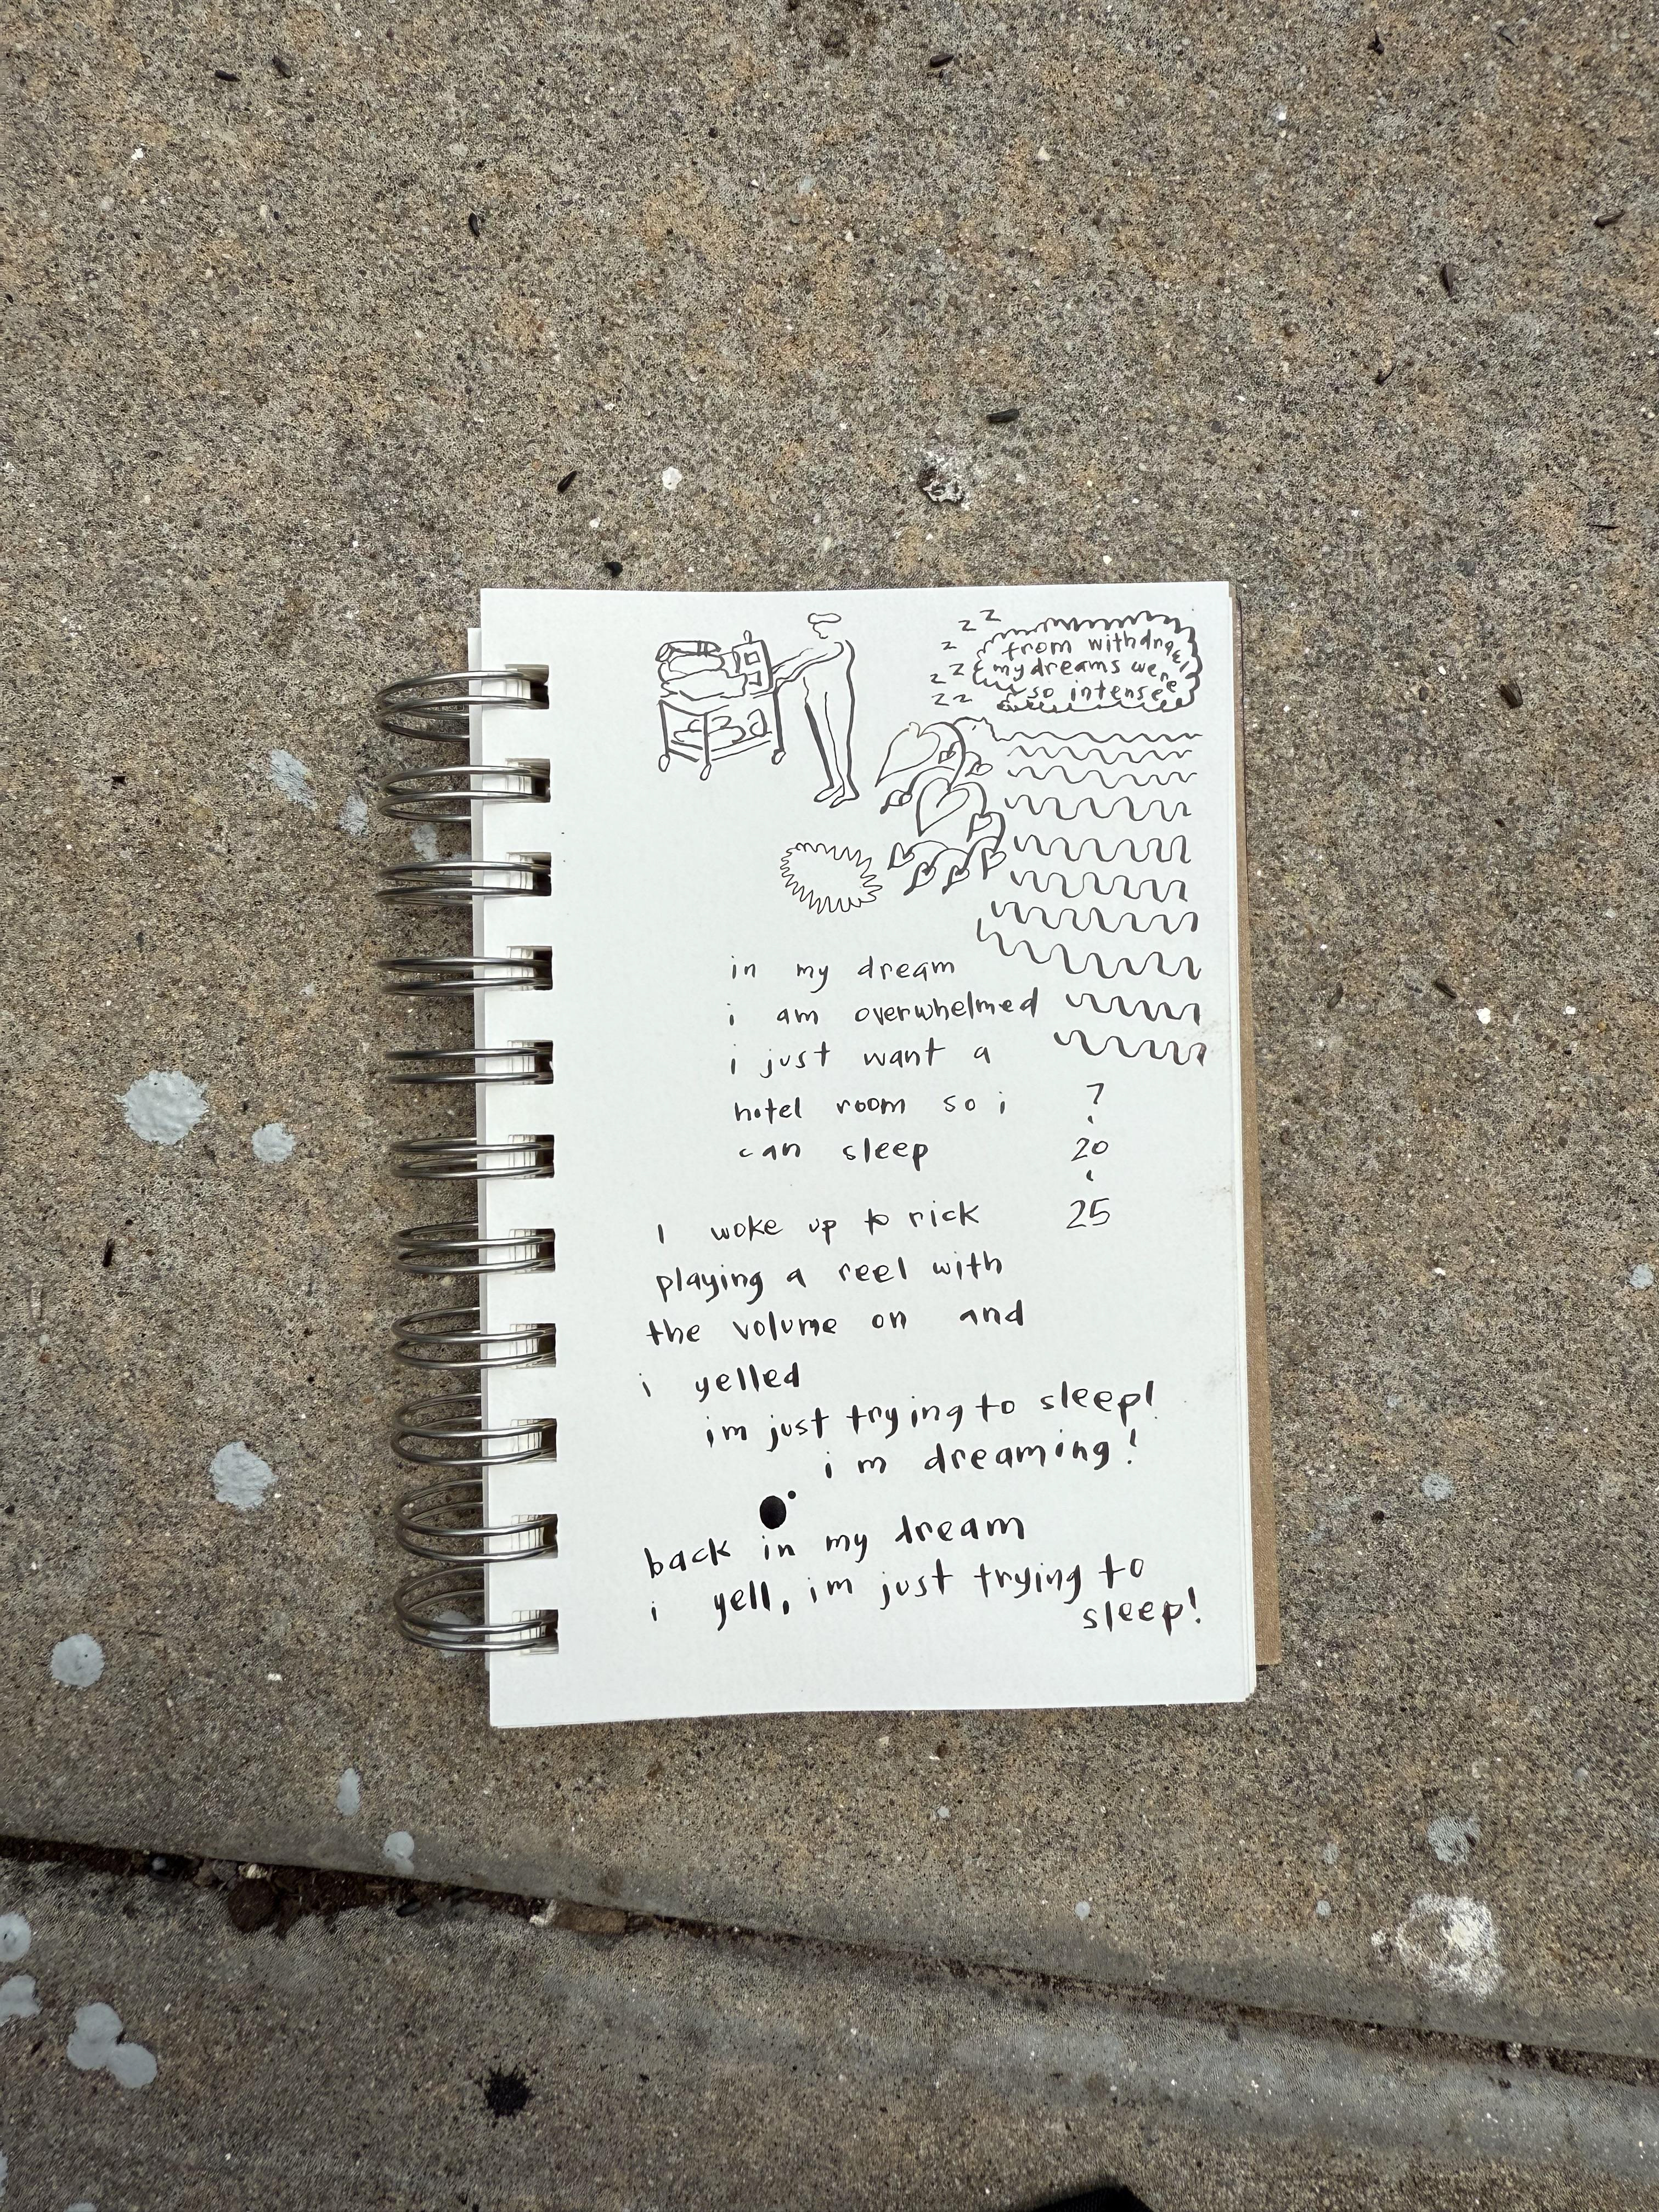 z z
z
z z
z z
z z
from withdrawl
my dreams were
so intense
in my dream
i am overwhelmed
i just want a
hotel room so i
can sleep
7
.
20
.
25
I woke up to rick
playing a reel with
the volume on and
i yelled
im just trying to sleep!
im dreaming!
back in my dream
i yell, im just trying to
sleep!